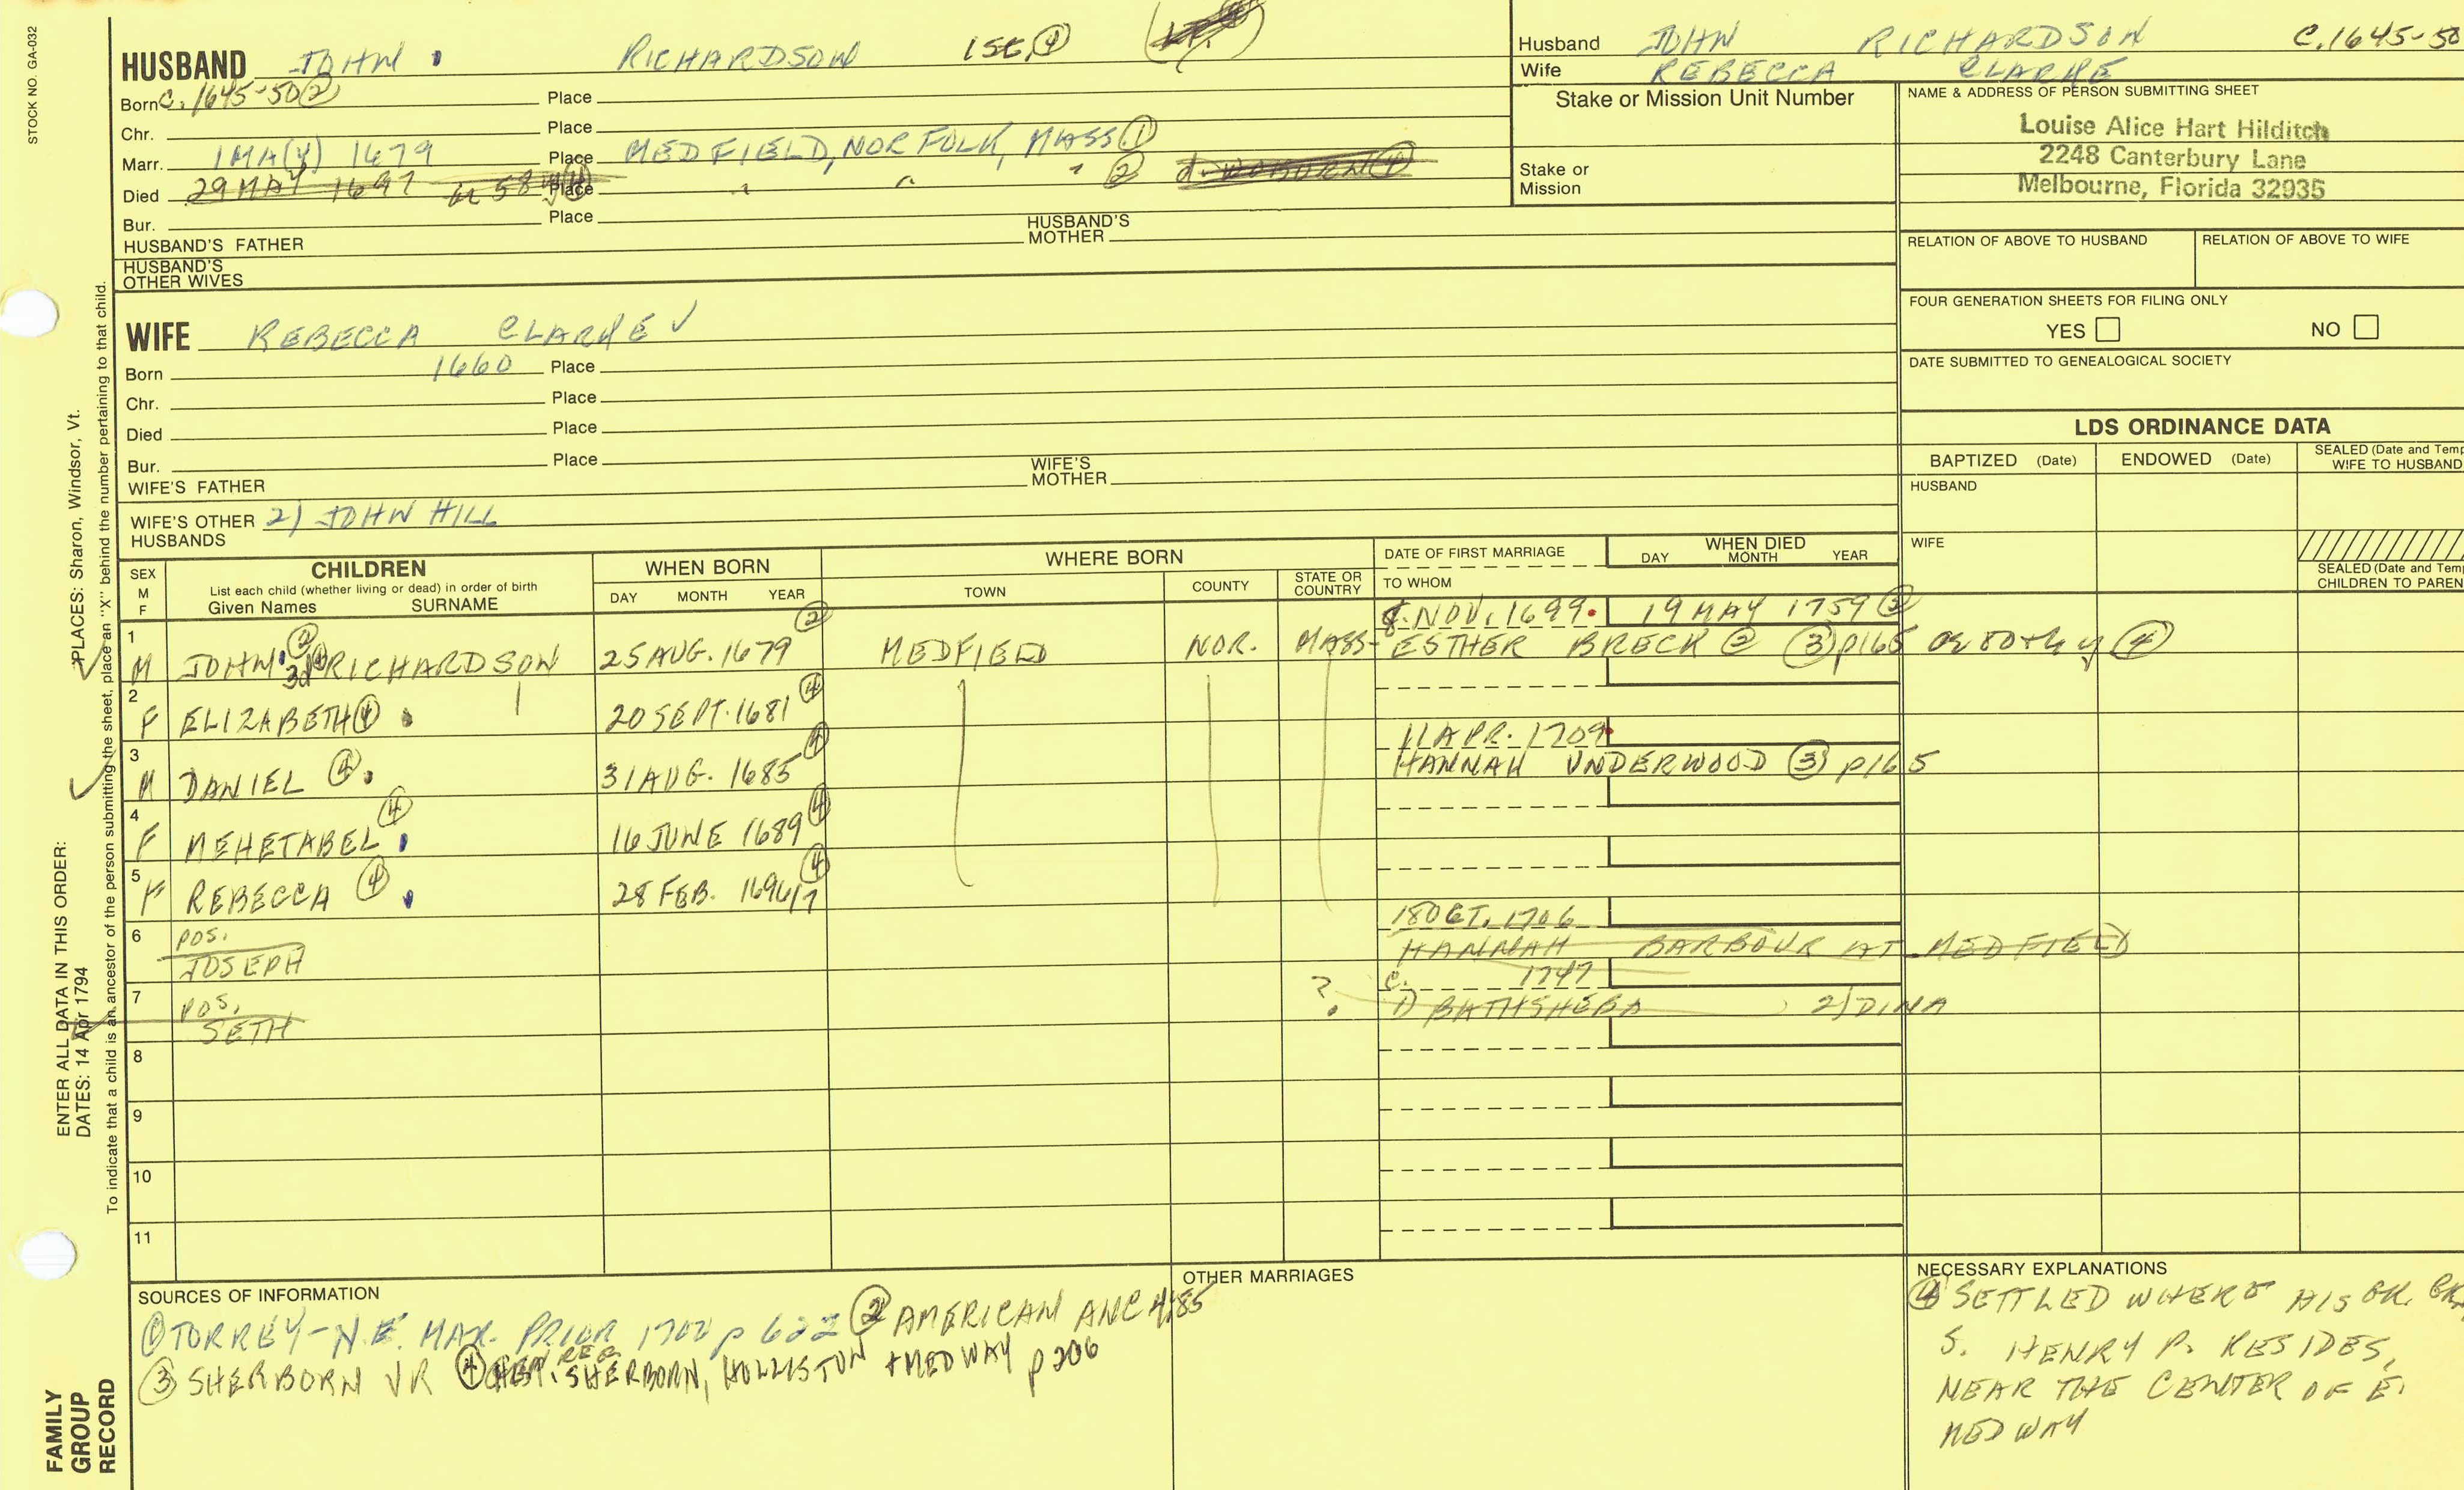 STOCK NO. GA-032
HUSBAND JOHN RICHARDSON 1ST ④
Born C. 1645-50 ② Place
Chr. Place
Marr. 1 MA(Y) 1679 Place MEDFIELD, NORFOLK, MASS ①
Died 29 MAY 1697 Place " " " ② d. WOBURN ④
Bur. Place
HUSBAND'S FATHER HUSBAND'S MOTHER
HUSBAND'S OTHER WIVES
Husband JOHN RICHARDSON C.1645-50
Wife REBECCA CLARKE
Stake or Mission Unit Number
Stake or Mission
NAME & ADDRESS OF PERSON SUBMITTING SHEET
Louise Alice Hart Hilditch
2248 Canterbury Lane
Melbourne, Florida 32935
RELATION OF ABOVE TO HUSBAND RELATION OF ABOVE TO WIFE
FOUR GENERATION SHEETS FOR FILING ONLY
YES NO
DATE SUBMITTED TO GENEALOGICAL SOCIETY
WIFE REBECCA CLARKE ✓
Born 1660 Place
Chr. Place
Died Place
Bur. Place
WIFE'S FATHER WIFE'S MOTHER
WIFE'S OTHER HUSBANDS 2) JOHN HILL
LDS ORDINANCE DATA
BAPTIZED (Date) ENDOWED (Date) SEALED (Date and Temp
WIFE TO HUSBAND
HUSBAND
WIFE
SEALED (Date and Temp
CHILDREN TO PAREN
SEX M F
CHILDREN
List each child (whether living or dead) in order of birth
Given Names SURNAME
WHEN BORN
DAY MONTH YEAR
WHERE BORN
TOWN COUNTY STATE OR COUNTRY
DATE OF FIRST MARRIAGE
TO WHOM
WHEN DIED
DAY MONTH YEAR
8. NOV. 1699 19 MAY 1759 ③
1 M JOHN ② 3d ④ RICHARDSON 25 AUG. 1679 ② MEDFIELD NOR. MASS- ESTHER BRECK @ ③ p165 or 80th y ④
2 F ELIZABETH ④ 20 SEPT. 1681 ④
11 APR. 1709
3 M DANIEL ④ 31 AUG. 1685 ④ HANNAH UNDERWOOD ③ p165
4 F MEHETABEL ④ 16 JUNE 1689 ④
5 F REBECCA ④ 28 FEB. 1696/7 ④
18 OCT. 1706
6 POS. JOSEPH HANNAH BARBOUR AT MEDFIELD
C. 1747
7 POS. SETH ? 1) BATHSHEBA 2) DINA
8
9
10
11
SOURCES OF INFORMATION
① TORREY-N.E. MAR. PRIOR 1700 p 622 ② AMERICAN ANC 4:85
③ SHERBORN VR ④ GEN REG. SHERBORN, HOLLISTON + MEDWAY p206
OTHER MARRIAGES
NECESSARY EXPLANATIONS
④ SETTLED WHERE HIS GR. GR.
S. HENRY P. RESIDES,
NEAR THE CENTER OF E.
MEDWAY
FAMILY GROUP RECORD
ENTER ALL DATA IN THIS ORDER:
DATES: 14 Apr 1794
PLACES: Sharon, Windsor, Vt.
To indicate that a child is an ancestor of the person submitting the sheet, place an "X" behind the number pertaining to that child.